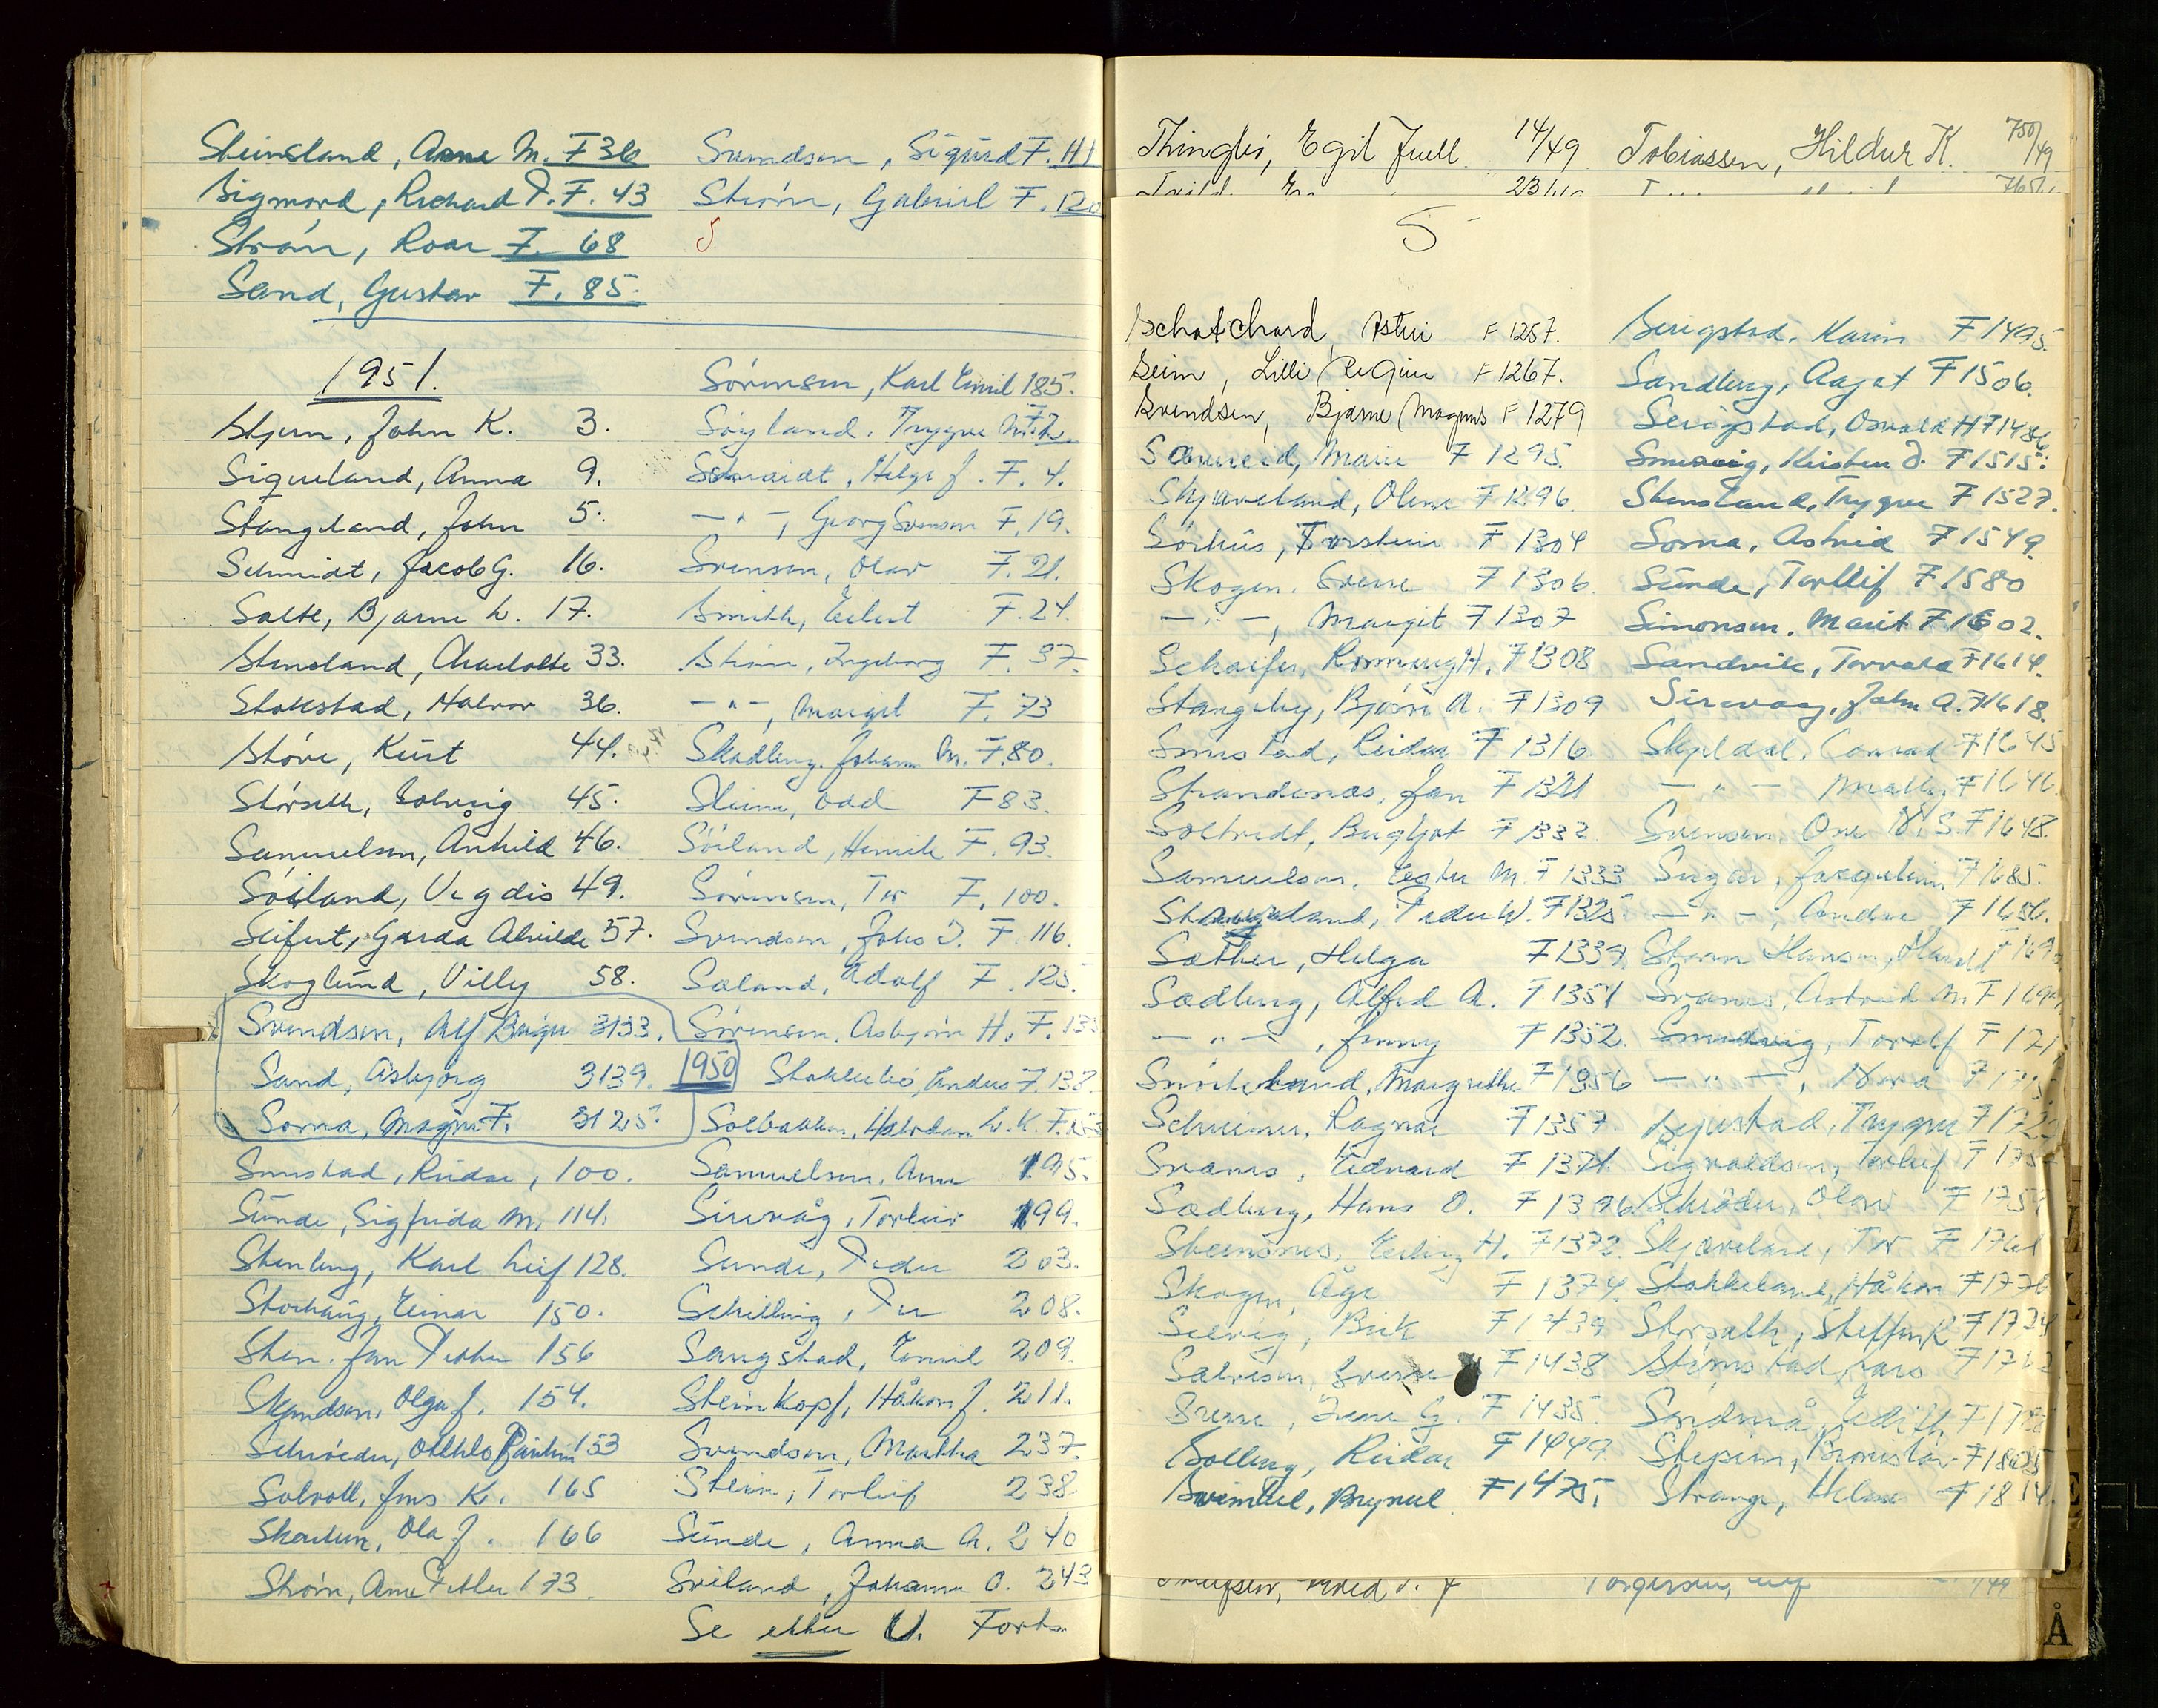 Steinsland, Anna M. F 36
Sigmond, Richard P. F. 43
Strøm, Roar F. 68
Sand, Gustav F. 85.
1951.
Stjern, John K. 3.
Siqueland, Anna 9.
Stangeland, John 5.
Schmidt, Jacob G. 16.
Salte, Bjarne L. 17.
Stensland, Charlotte 33.
Stokstad, Halvor 36.
Støve, Kurt 44.
Størseth, Solveig 45.
Samuelsen, Ånhild 46.
Søiland, Vigdis 49.
Seifert, Gerda Alvilde 57.
Skoglund, Villy 58.
Svendsen, Alf Birger 3133.
Sand, Asbjørg 3139.
Soma, Magn. F. 3125.
Smistad, Reidar, 100.
Sunde, Sigfrida M. 114.
Stenberg, Karl Leif 128.
Storhaug, Einar 150.
Sten. Jan Petter 156
Skandsen, Olga J. 154.
Schrøeder, 153
Solvoll, Jens K. 165
Ola J. 166
Strøm, Arne Petter 173.
Svendsen, Sigurd F. 111
Strøm, Gabriel F. 120
Sørensen, Karl Emil 185.
Søyland. Trygve F. 2.
Schmidt, Helge J. F. 4.
— " —, Georg Svensen F. 19.
Svensen, Olav F. 21.
Smith, Eilert F. 24.
Strøm, Ingeborg F. 37.
— " —, Margit F. 73
Skadberg. Johan M. F. 80.
Steine, Odd F 83.
Søiland, Henrik F. 93.
Sørensen, Tor F. 100.
Svendsen, Johs J. F. 116.
Søland, Adolf F. 125.
Sørensen. Asbjørn H. F. 13
1950 Stokkebø, Anders F. 138.
Solbakken, Halvdan L. K. F.
Samuelsen, Anne 195.
Sirevåg, Torleiv 199.
Sunde, Peder 203.
Schilling, Per 208.
Sangstad, Emil 209.
Steinkopf, Håkon J. 211.
Svendsen, Martha 237.
Stein, Torleif 238
Sunde, Anna A. 240
Sviland, Johanne O. 243
Se etter U. Forts.
Thingbø, Egil Juell. 14/49
Tobiassen, Hildur K. 750/49
S
Schatchard, Astri F 1257.
Seim, Lilli Regine F 1267.
Svendsen, Bjarne Magnus F 1279
Sømreid, Marie F 1295.
Skjæveland, Olene F 1296.
Sørhus, Torstein F 1304
Skogen. Sverre F 1306
— " —, Margit F 1307
Schaefer, Ronnaug H. F 1308
Stangeby, Bjørn A. F 1309
Smistad, Reidar F 1316
Strandenæs, Jan F 1321
Soltvedt, Bergljot F 1332
Samuelsen, Ester M. F 1333
Stangeland, Peder W. F 1325.
Sæther, Helga F 1339
Sædberg, Alfred A. F 1351
— " —, Jenny F 1352.
Margrethe F 1356
Schreiner, Ragnar F 1357.
Svanes, Edvard F 1371.
Sædberg, Hans O. F 1396
Steensnes, Erling H. F 1372.
Skogen, Åge F 1374.
Selvig, Birk F 1439
Salvesen, Sverre F 1438
Sverre, Irene G. F 1435.
Solberg, Reidar F 1449.
Brynul F 1475.
Serigstad. Karin F 1495
Sandberg, Aagot F 1506.
Serigstad, Osvald H F 1486
Smevig, Kristen J. F 1515.
Stensland, Trygve F 1527.
Soma, Astrid F 1549.
Sunde, Torleif F 1580
Simonsen. Marit F 1602.
Sandvik, Torvald F 1614.
Sirevaag, John A. F 1618.
Skjeldal. Conrad F 1645
— " — Mally F 1646.
Svensen, One S. F 1648.
Jacqueline F 1685.
— " —, Andre F 1686.
Strøm Hansen, Harald F 169
Svanes, Astrid M. F 169
Smedvig, Torolf F 171
— " —, Nora F 171
Trygve F 172
Sigvaldsen, Torleif F 175
Schrøder, Olav F 175
Skjæveland, Tor F 1761
Stokkeland, Håkon F 1776
Storsæth, Steffen K F 1724
Lars F 176
Sændmå, Edith F 17
Stepien, Bronislav F 1805
Strange, Helene F 1814.
Torgersen, Leif
Å